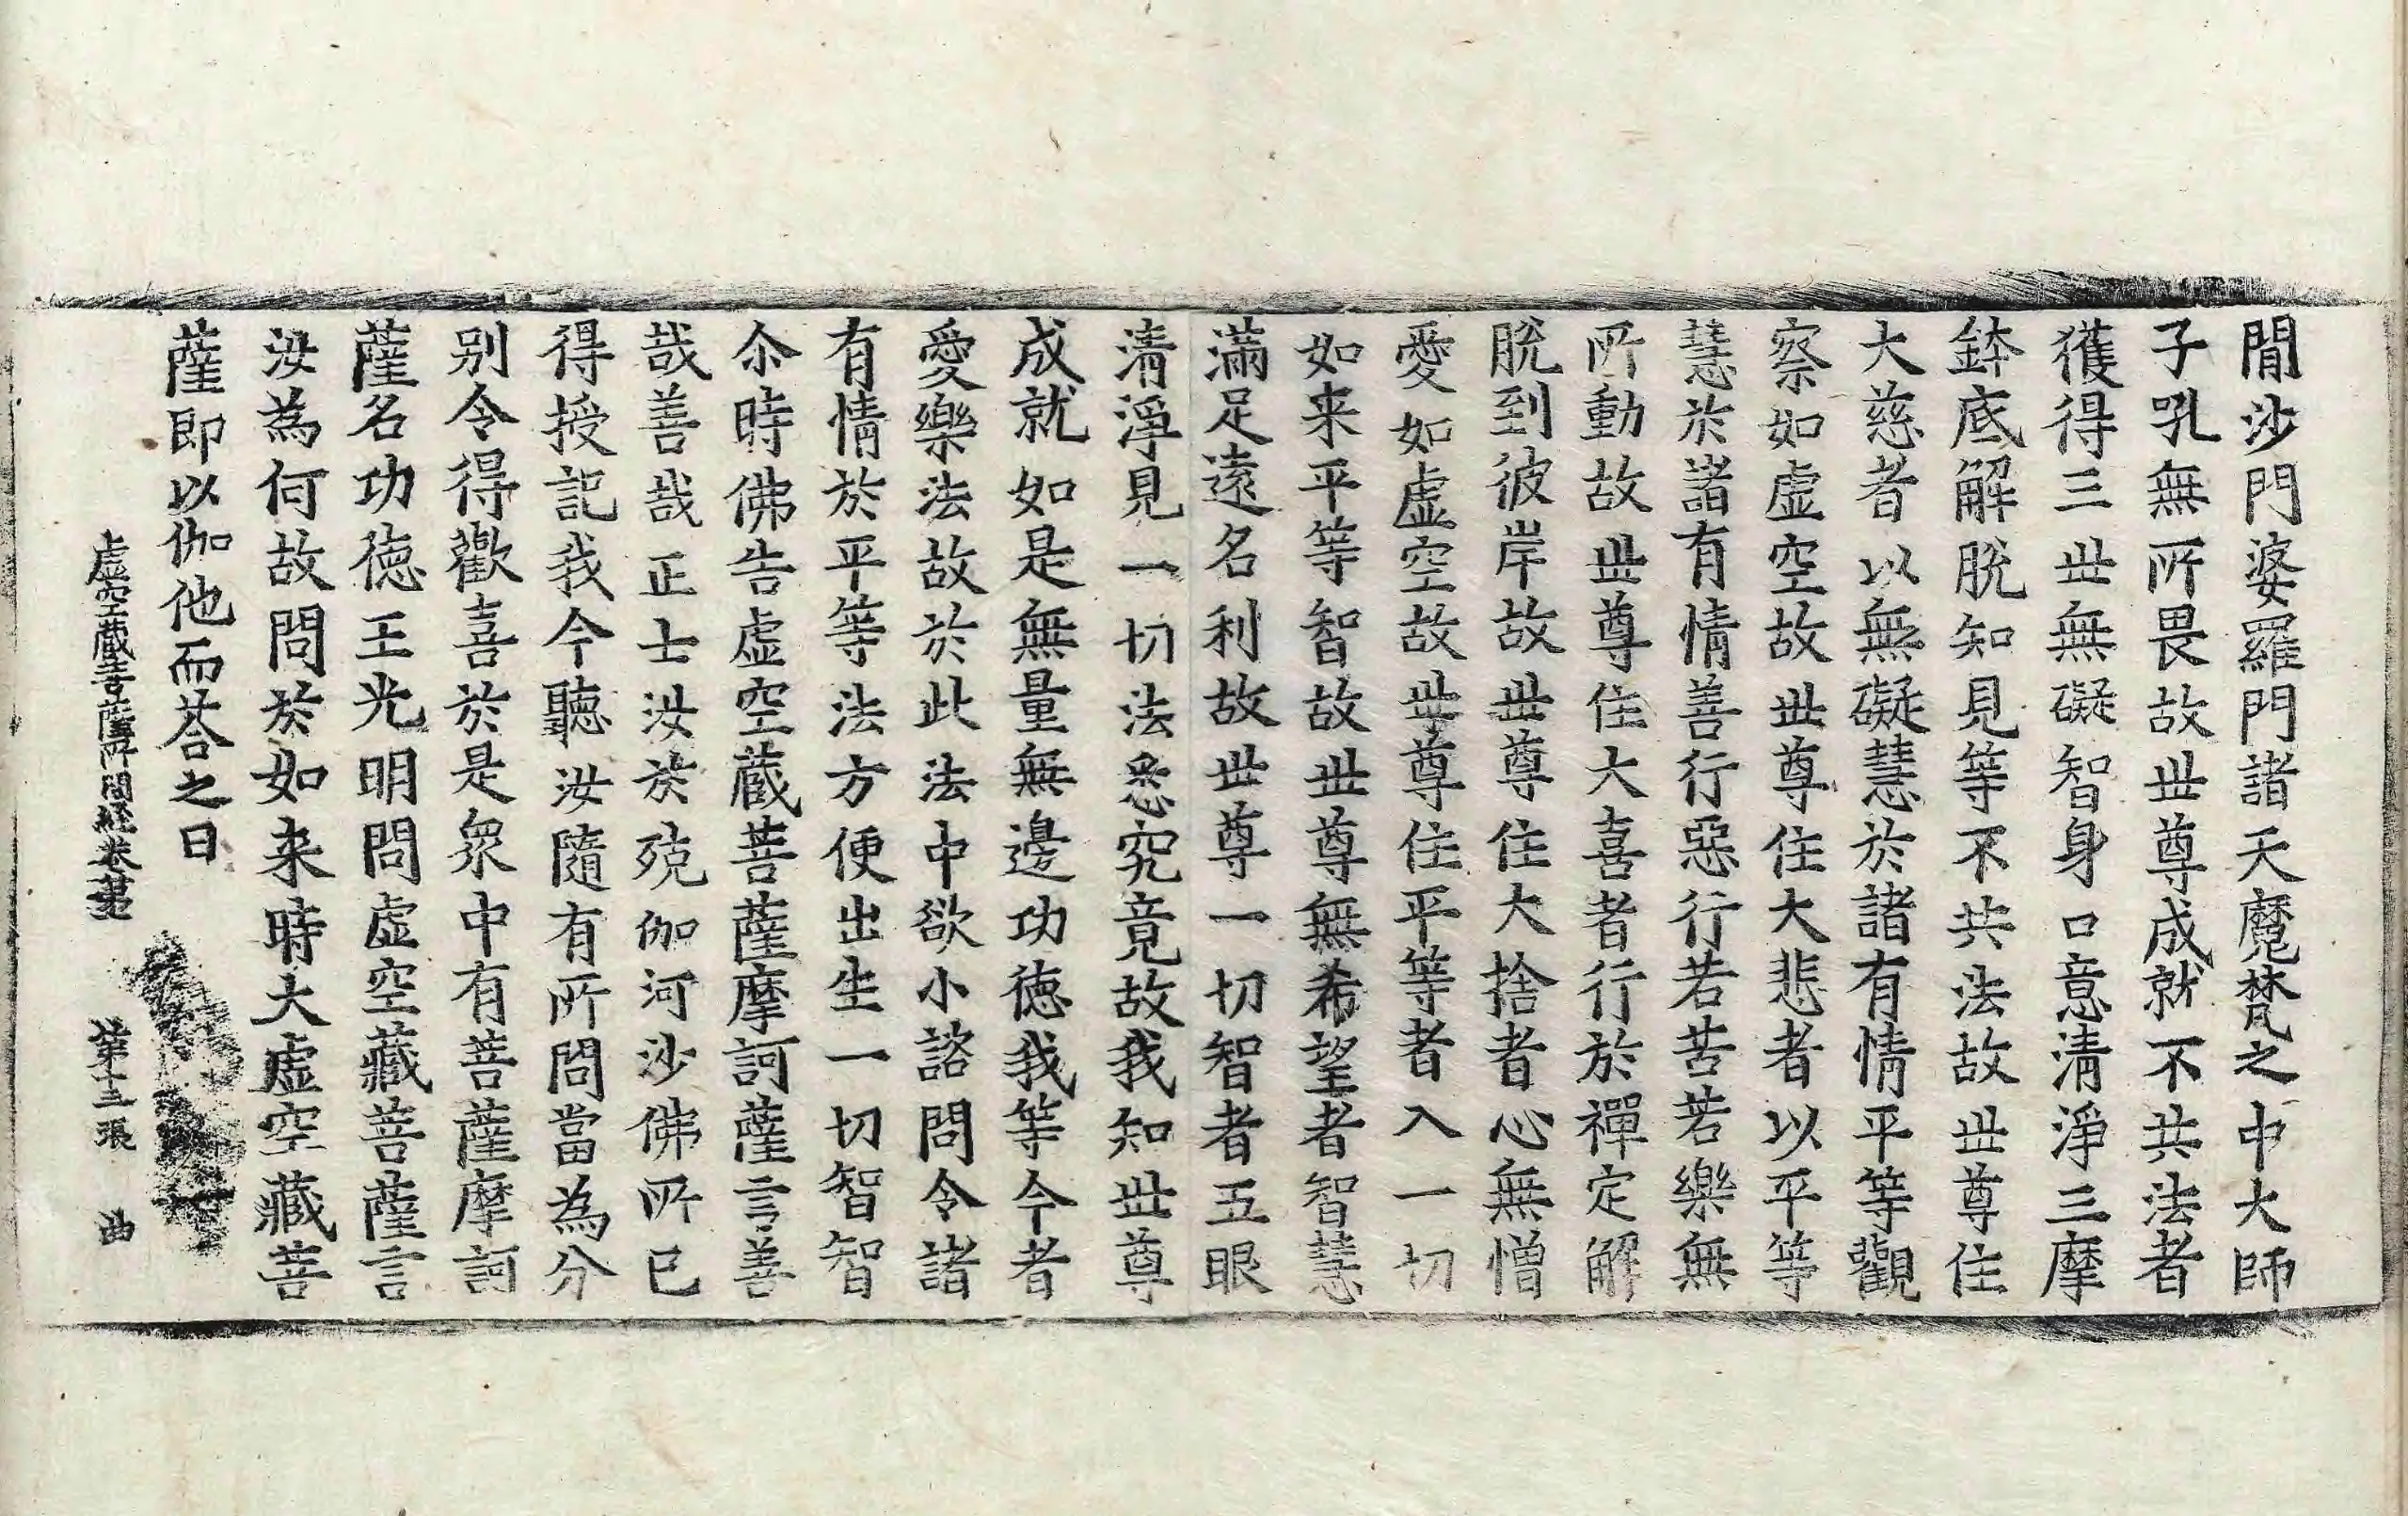 閒沙門婆羅門諸天魔梵之中大師
子吼無所畏故世尊成就不共法者
獲得三世無礙智身口意清淨三摩
鉢底解脫知見等不共法故世尊住
大慈者以無礙慧於諸有情平等觀
察如虛空故世尊住大悲者以平等
慧於諸有情善行惡行若苦若樂無
所動故世尊住大喜者行於禪定解
脫到彼岸故世尊住大捨者心無憎
愛如虛空故世尊住平等者入一切
如来平等智故世尊無希望者智慧
滿足遠名利故世尊一切智者五眼
清淨見一切法悉究竟故我知世尊
成就如是無量無邊功德我等今者
愛樂法故於此法中欲小諮問令諸
有情於平等法方便出生一切智智
尒時佛告虛空蔵菩薩摩訶薩言善
哉善哉正士汝於殑伽河沙佛所已
得授記我今聽汝隨有所問當為分
别令得歡喜於是衆中有菩薩摩訶
薩名功徳王光明問虛空藏菩薩言
汝為何故問於如来時大虛空藏菩
薩即以伽他而荅之曰
虛空蔵菩薩所問経卷苐 苐十三張 曲